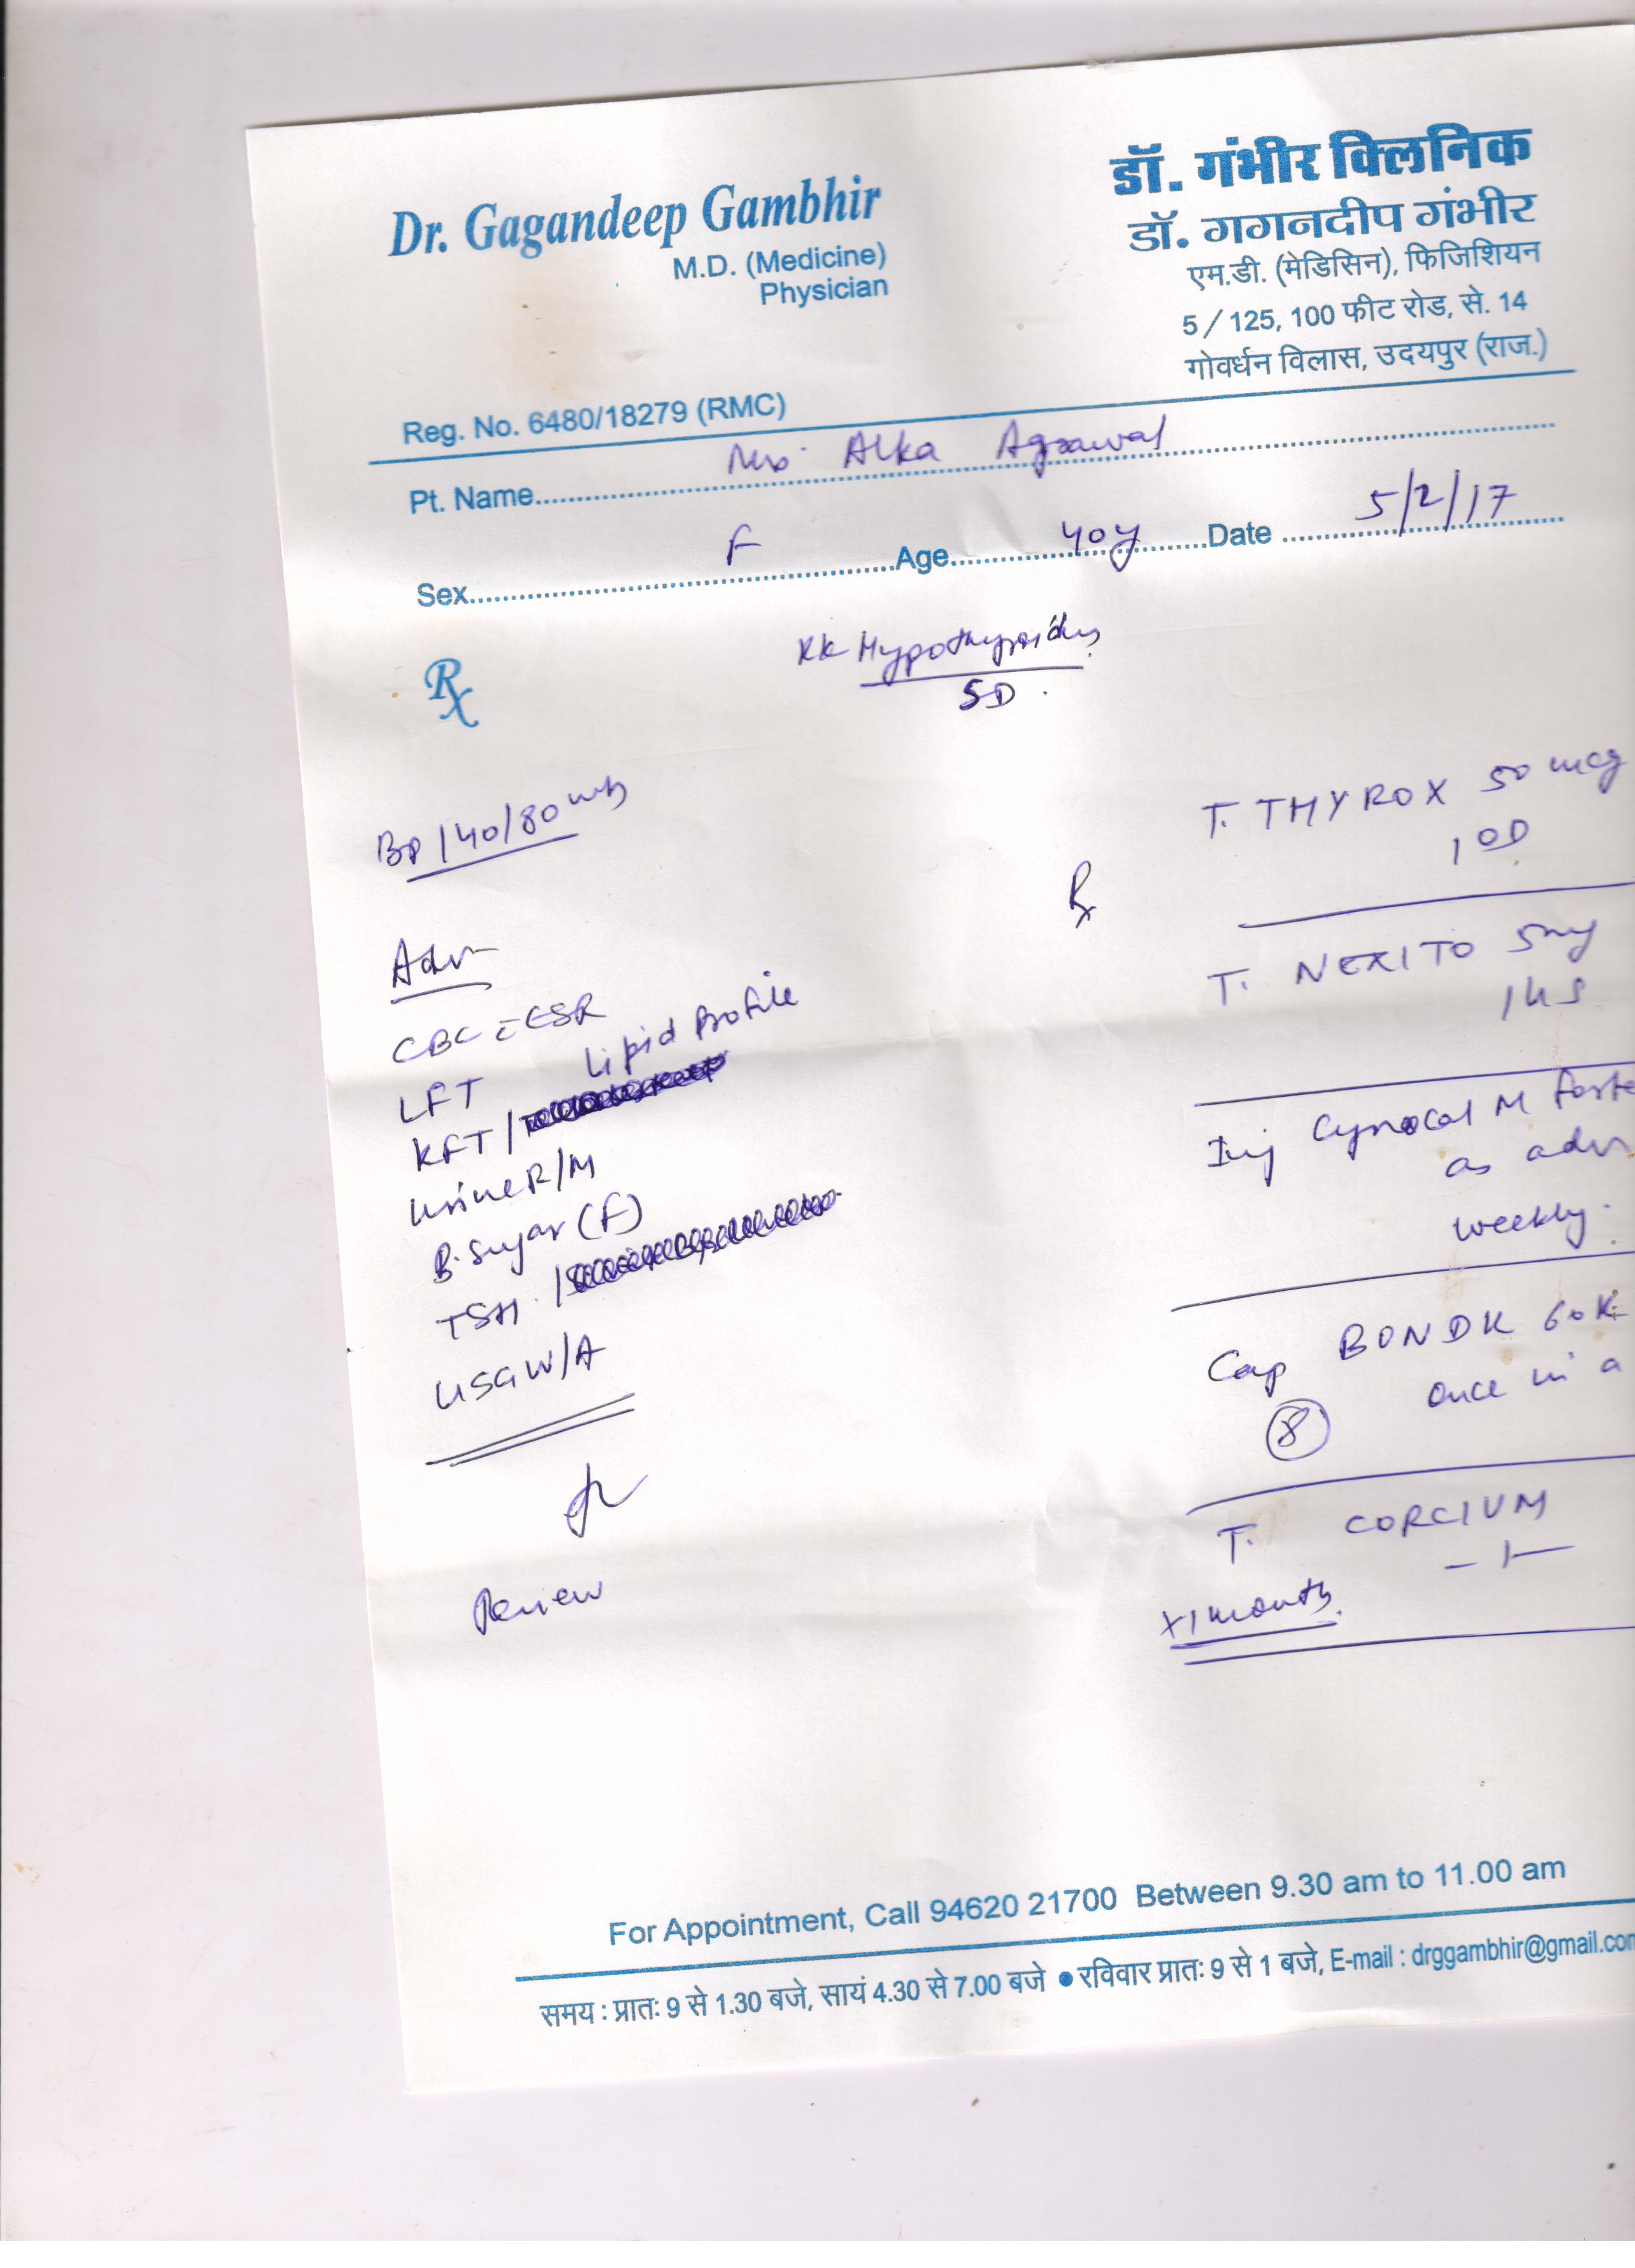 Dr. Gagandeep Gambhir
M.D. (Medicine)
Physician
Reg. No. 6480/18279 (RMC)
डॉ. गंभीर क्लिनिक
डॉ. गगनदीप गंभीर
एम.डी. (मेडिसिन), फिजिशियन
5 / 125, 100 फीट रोड, से. 14
गोवर्धन विलास, उदयपुर (राज.)
Pt. Name Mrs. Alka Agrawal
Sex F Age 40y Date 5/2/17
Rx
KK Hypothyroidus
SD.
BP 140/80
Adv
CBC c ESR
LFT Lipid Profile
KFT/
Urine R/M
B. Sugar (F)
TSH. /
USG W/A
Review
Rx
T. THYROX 50 mcg
1 OD
T. NEXITO 5mg
1 HS
Inj Cynocal M forte
as adv
weekly.
Cap BONDK 60K
8 once in a
T. CORCIUM
– 1 –
x 1 month.
For Appointment, Call 94620 21700 Between 9.30 am to 11.00 am
समय : प्रातः 9 से 1.30 बजे, सायं 4.30 से 7.00 बजे ● रविवार प्रातः 9 से 1 बजे, E-mail : drggambhir@gmail.com